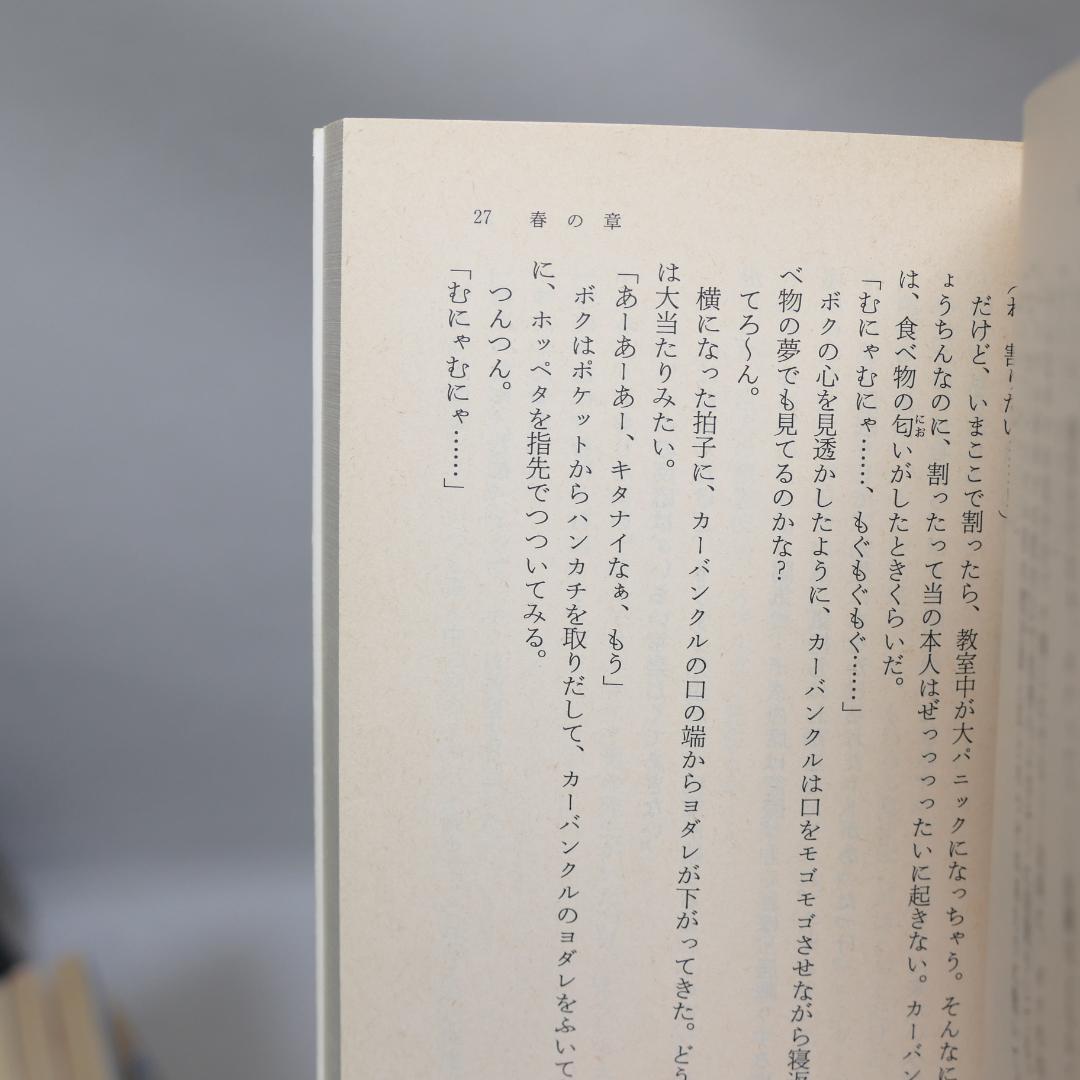 27 春の章
だけど、いまここで割ったら、教室中が大パニックになっちゃう。そんなに
ょうちんなのに、割ったって当の本人はぜっっったいに起きない。カーバン
は、食べ物の匂いがしたときくらいだ。
「むにゃむにゃ……、もぐもぐもぐ……」
ボクの心を見透かしたように、カーバンクルは口をモゴモゴさせながら寝返
べ物の夢でも見てるのかな?
てろ〜ん。
横になった拍子に、カーバンクルの口の端からヨダレが下がってきた。どう
は大当たりみたい。
「あーあーあー、キタナイなぁ、もう」
ボクはポケットからハンカチを取りだして、カーバンクルのヨダレをふいて
に、ホッペタを指先でつついてみる。
つんつん。
「むにゃむにゃ……」